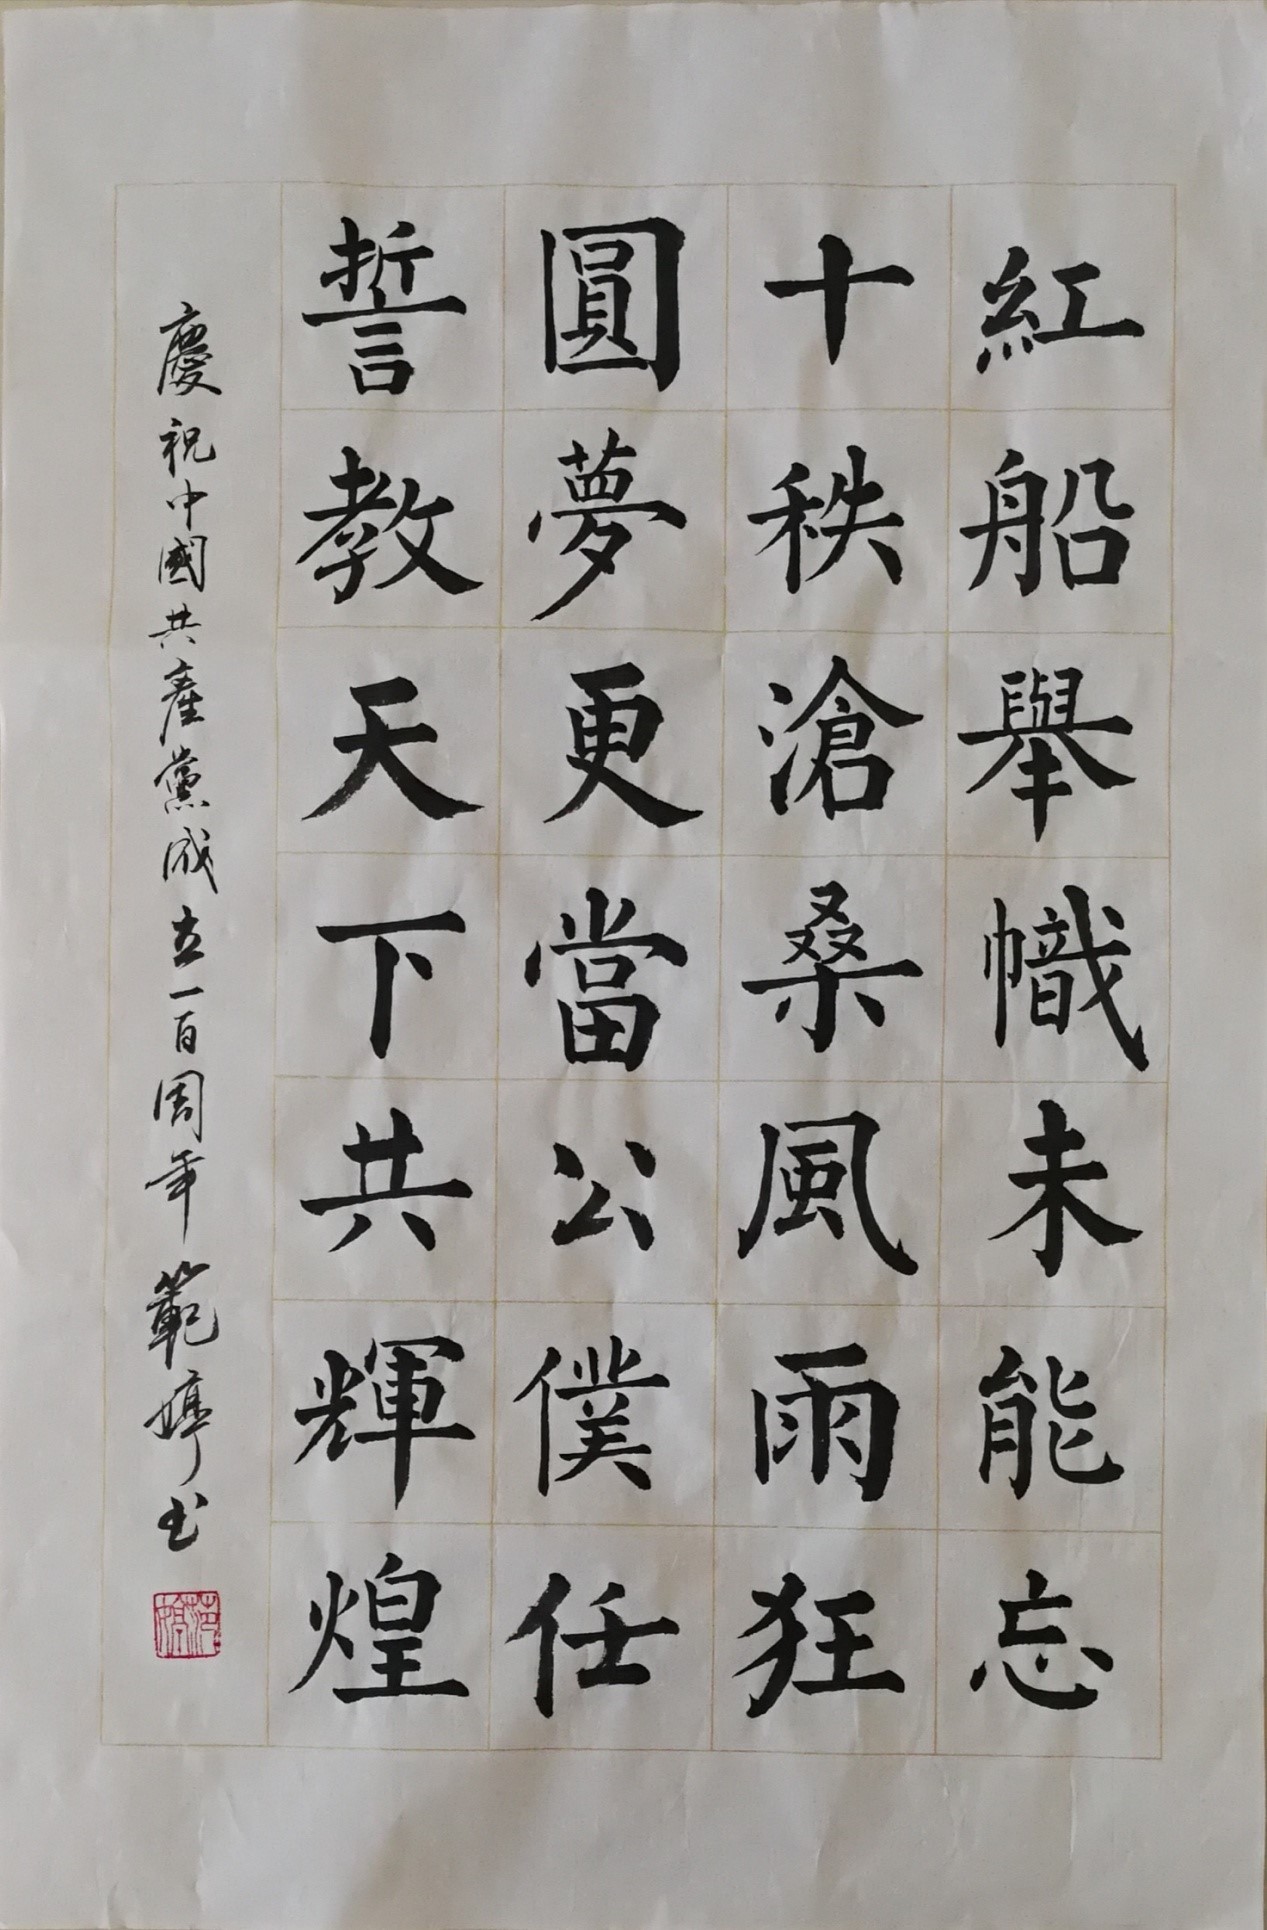 紅船舉幟未能忘
十秩滄桑風雨狂
圓夢更當公僕任
誓教天下共輝煌
慶祝中國共產黨成立一百周年 範婷书
范婷